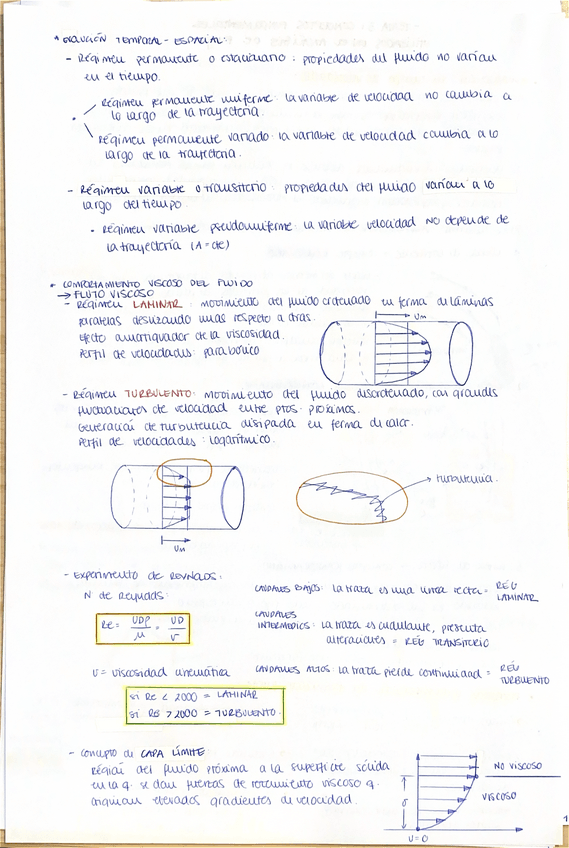 * EVOLUCIÓN TEMPORAL - ESPACIAL:
- Régimen permanente o estacionario: propiedades del fluido no varían
en el tiempo.
Régimen permanente uniforme: la variable de velocidad no cambia a
lo largo de la trayectoria.
Régimen permanente variado: la variable de velocidad cambia a lo
largo de la trayectoria.
- Régimen variable o transitorio: propiedades del fluido varían a lo
largo del tiempo
• Régimen variable pseudouniforme: la variable velocidad NO depende de
la trayectoria (A = cte)
* COMPORTAMIENTO VISCOSO DEL FLUIDO
→ FLUJO VISCOSO
- Régimen LAMINAR: movimiento del fluido ordenado en forma de láminas
paralelas deslizando unas respecto a otras.
Efecto amortiguador de la viscosidad.
Perfil de velocidades: parabólico
Um
- Régimen TURBULENTO: movimiento del fluido desordenado, con grandes
fluctuaciones de velocidad entre ptos. próximos.
Generación de turbulencia disipada en forma de calor.
Perfil de velocidades: logarítmico.
turbulencia.
Um
- Experimento de REYNOLDS:
N de Reynolds:
Re = UDρ/μ = UD/ν
CAUDALES BAJOS: la traza es una línea recta = RÉG LAMINAR
CAUDALES
INTERMEDIOS: la traza es ondulante, presenta
alteraciones = RÉG TRANSITORIO
υ = viscosidad cinemática
CAUDALES ALTOS: la traza pierde continuidad = RÉG TURBULENTO
si Re < 2000 = LAMINAR
si Re > 2000 = TURBULENTO.
- Concepto de CAPA LÍMITE:
Región del fluido próxima a la superficie sólida
en la q. se dan fuerzas de rozamiento viscoso q.
originan elevados gradientes de velocidad.
NO VISCOSO
VISCOSO
σ
U=0
1